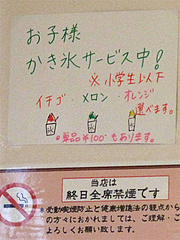 お子様
かき氷サービス中!
※小学生以下
イチゴ・メロン・オレンジ
選べます。
※単品¥100でもあります。
当店は
終日全席禁煙です
受動喫煙防止と健康増進法の観点から
の方々におかれましては、ご理解・ご
よろしくお願い致します。